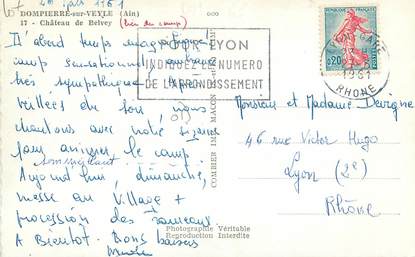 DOMPIERRE-sur-VEYLE (Ain)
17 - Château de Belvey (près du camp)
D'abord temps magnifique
camp sensationnel
très sympathique
Veillées du soir, nous
chantons avec notre
pour animer le camp.
Aujourd'hui, dimanche,
messe au village +
procession des rameaux
A Bientôt. Bons baisers
POUR LYON
INDIQUEZ LE NUMERO
DE L'ARRONDISSEMENT
LYON GARE
1961
RHONE
0,20
COMBIER IMP. MACON
Monsieur et Madame Devigne
46 rue Victor Hugo
Lyon (2e)
Rhône
Photographie Véritable
Reproduction Interdite